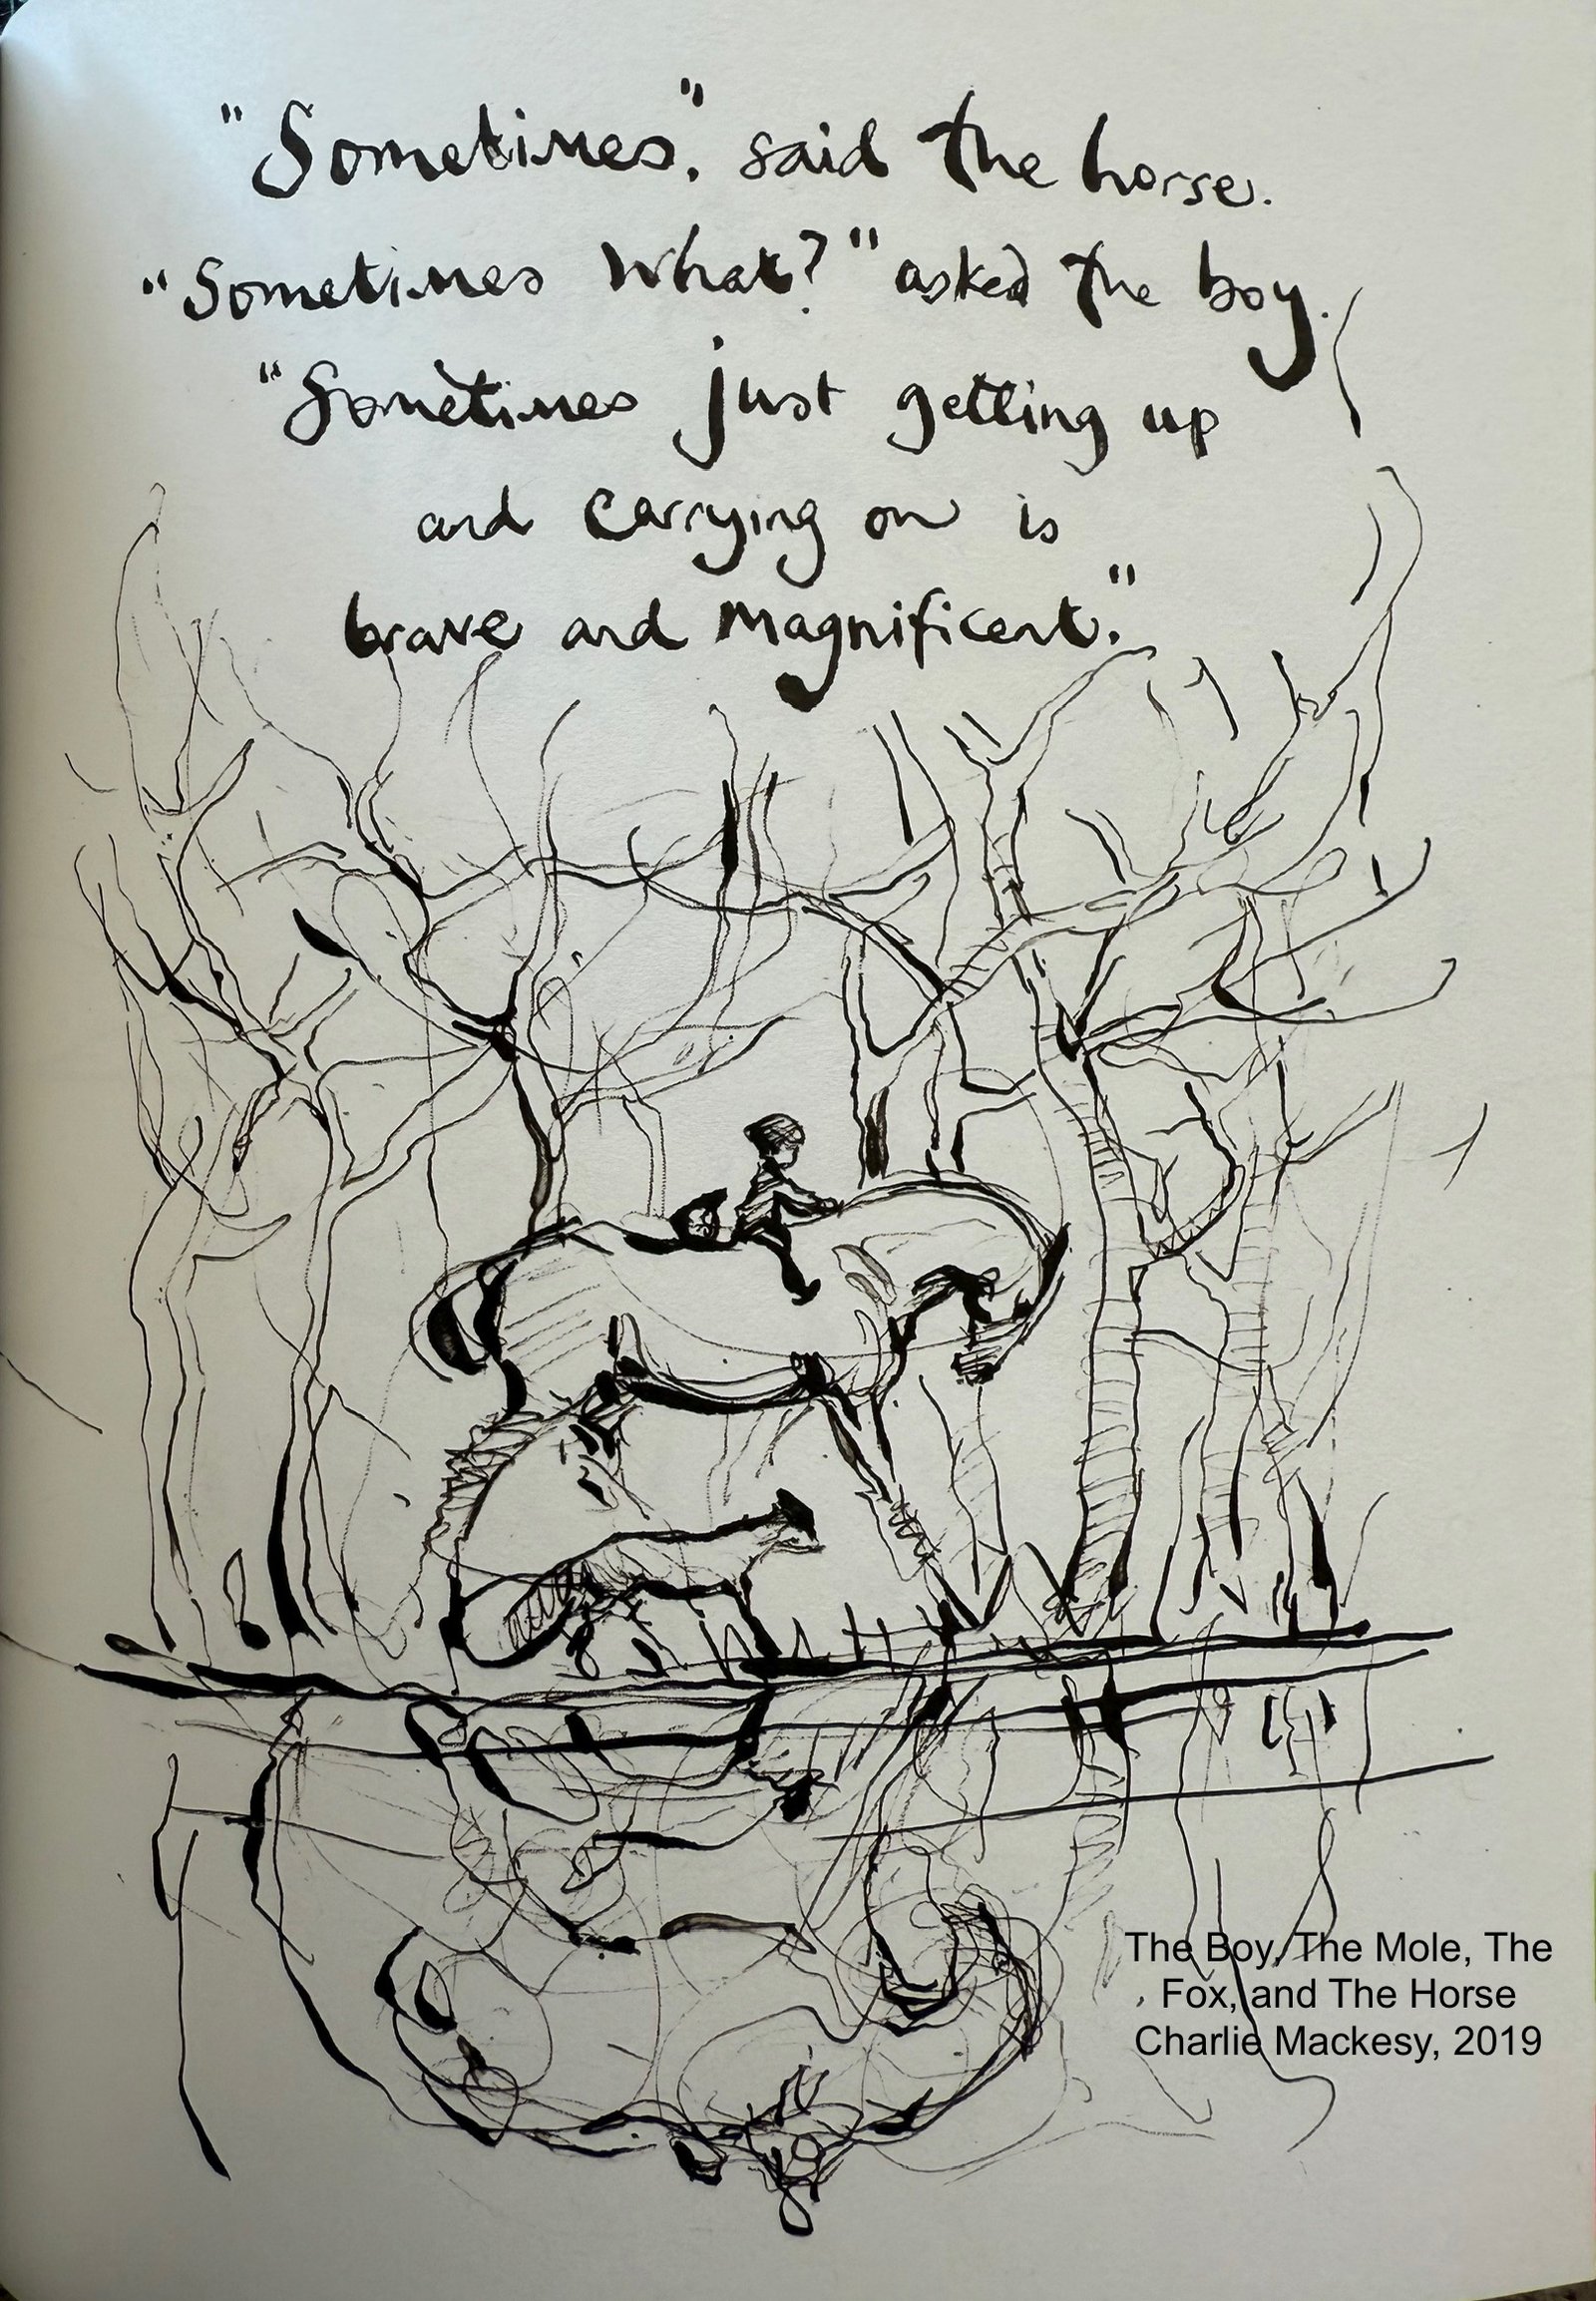 "Sometimes," said the horse.
"Sometimes what?" asked the boy.
"Sometimes just getting up
and carrying on is
brave and magnificent."
The Boy, The Mole, The
Fox, and The Horse
Charlie Mackesy, 2019